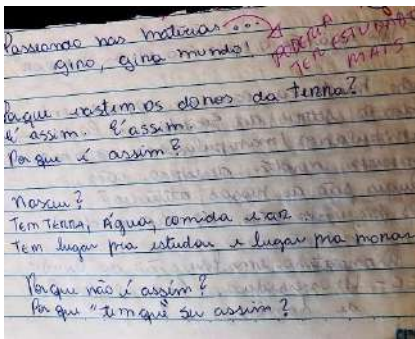 Passeando nas matérias...
giro, gira mundo!
PODERIA
TER ESTUDADO
MAIS
Porque existem os donos da terra?
É assim. É assim.
Por que é assim?
Nasceu?
TEM TERRA, Água, comida e ar...
Tem lugar pra estudar e lugar pra morar
Por que não é assim?
Por que "tem que" ser assim?